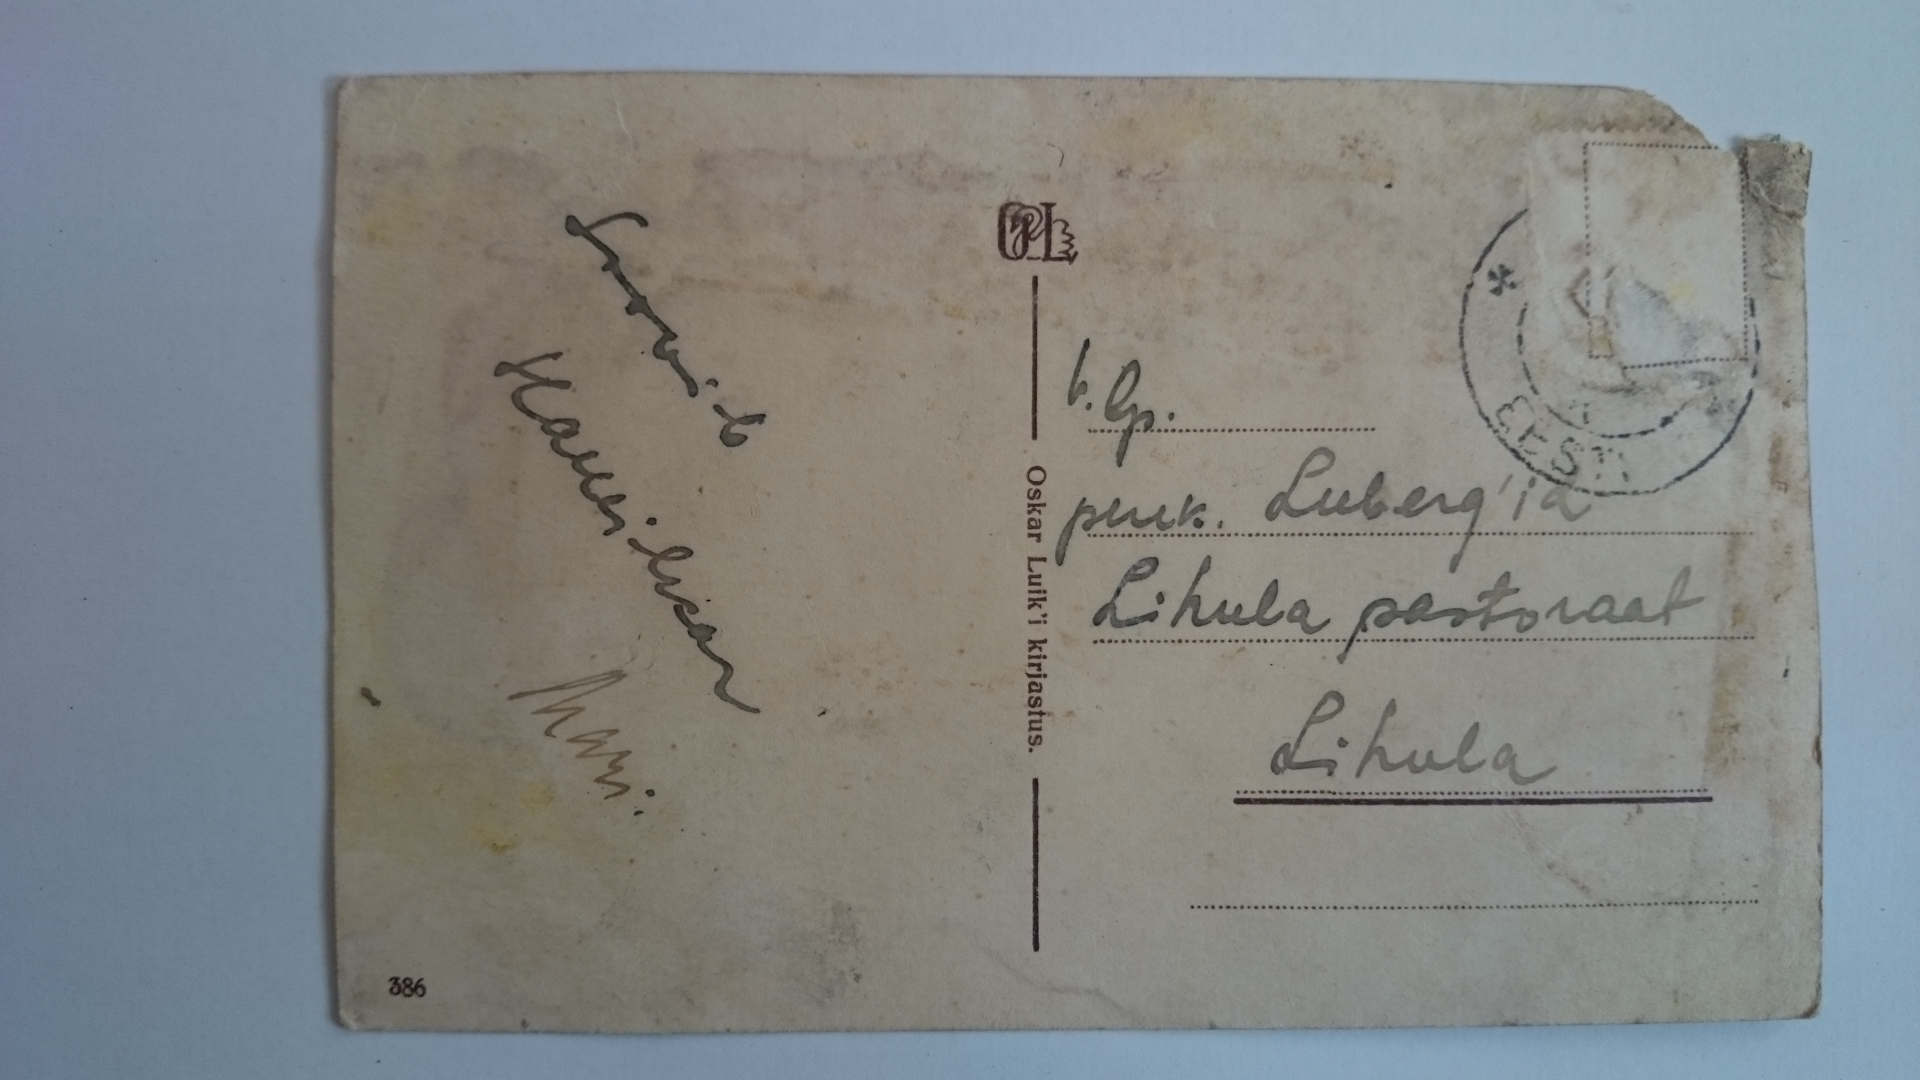 Soovib
Mari.
OL
Oskar Luik'i kirjastus.
EESTI
v. lp.
perek. Luberg'id
Lihula pastoraat
Lihula
386